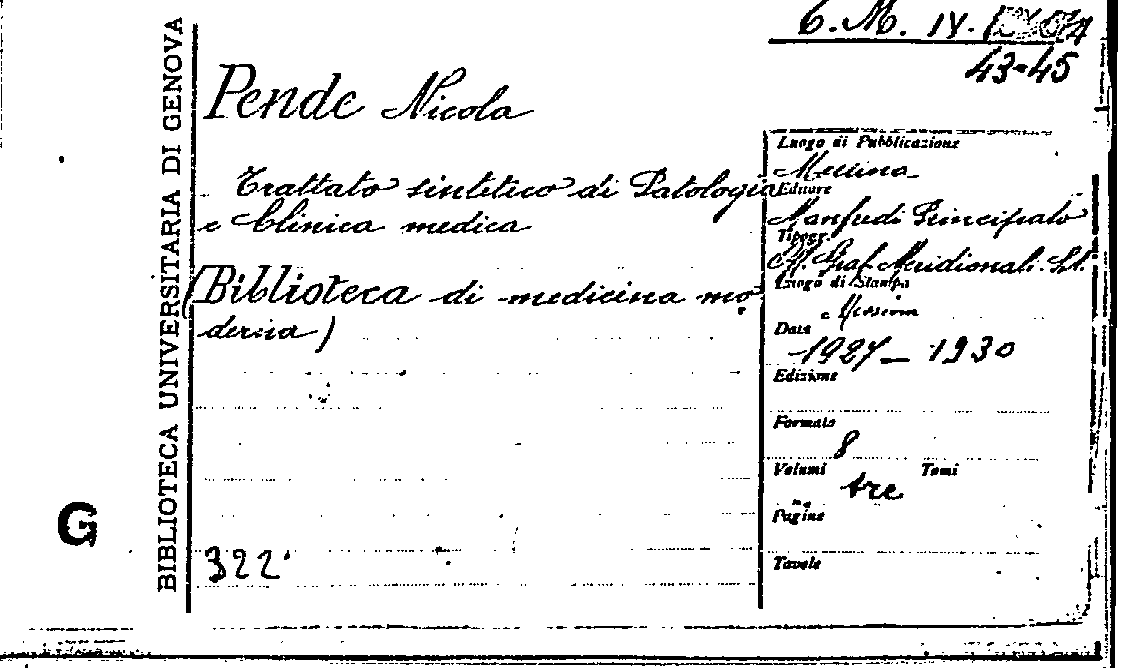 6. M. IV.
43-45
BIBLIOTECA UNIVERSITARIA DI GENOVA
Pende Nicola
Trattato sintetico di Patologia
e Clinica medica
(Biblioteca di medicina mo
derna)
322
G
Luogo di Pubblicazione
Messina
Editore
Principato
Tipogr.
Graf. Meridionali.
Luogo di Stampa
Messina
Data
1927 - 1930
Edizione
Formato
8
Volumi Tomi
tre
Pagine
Tavole